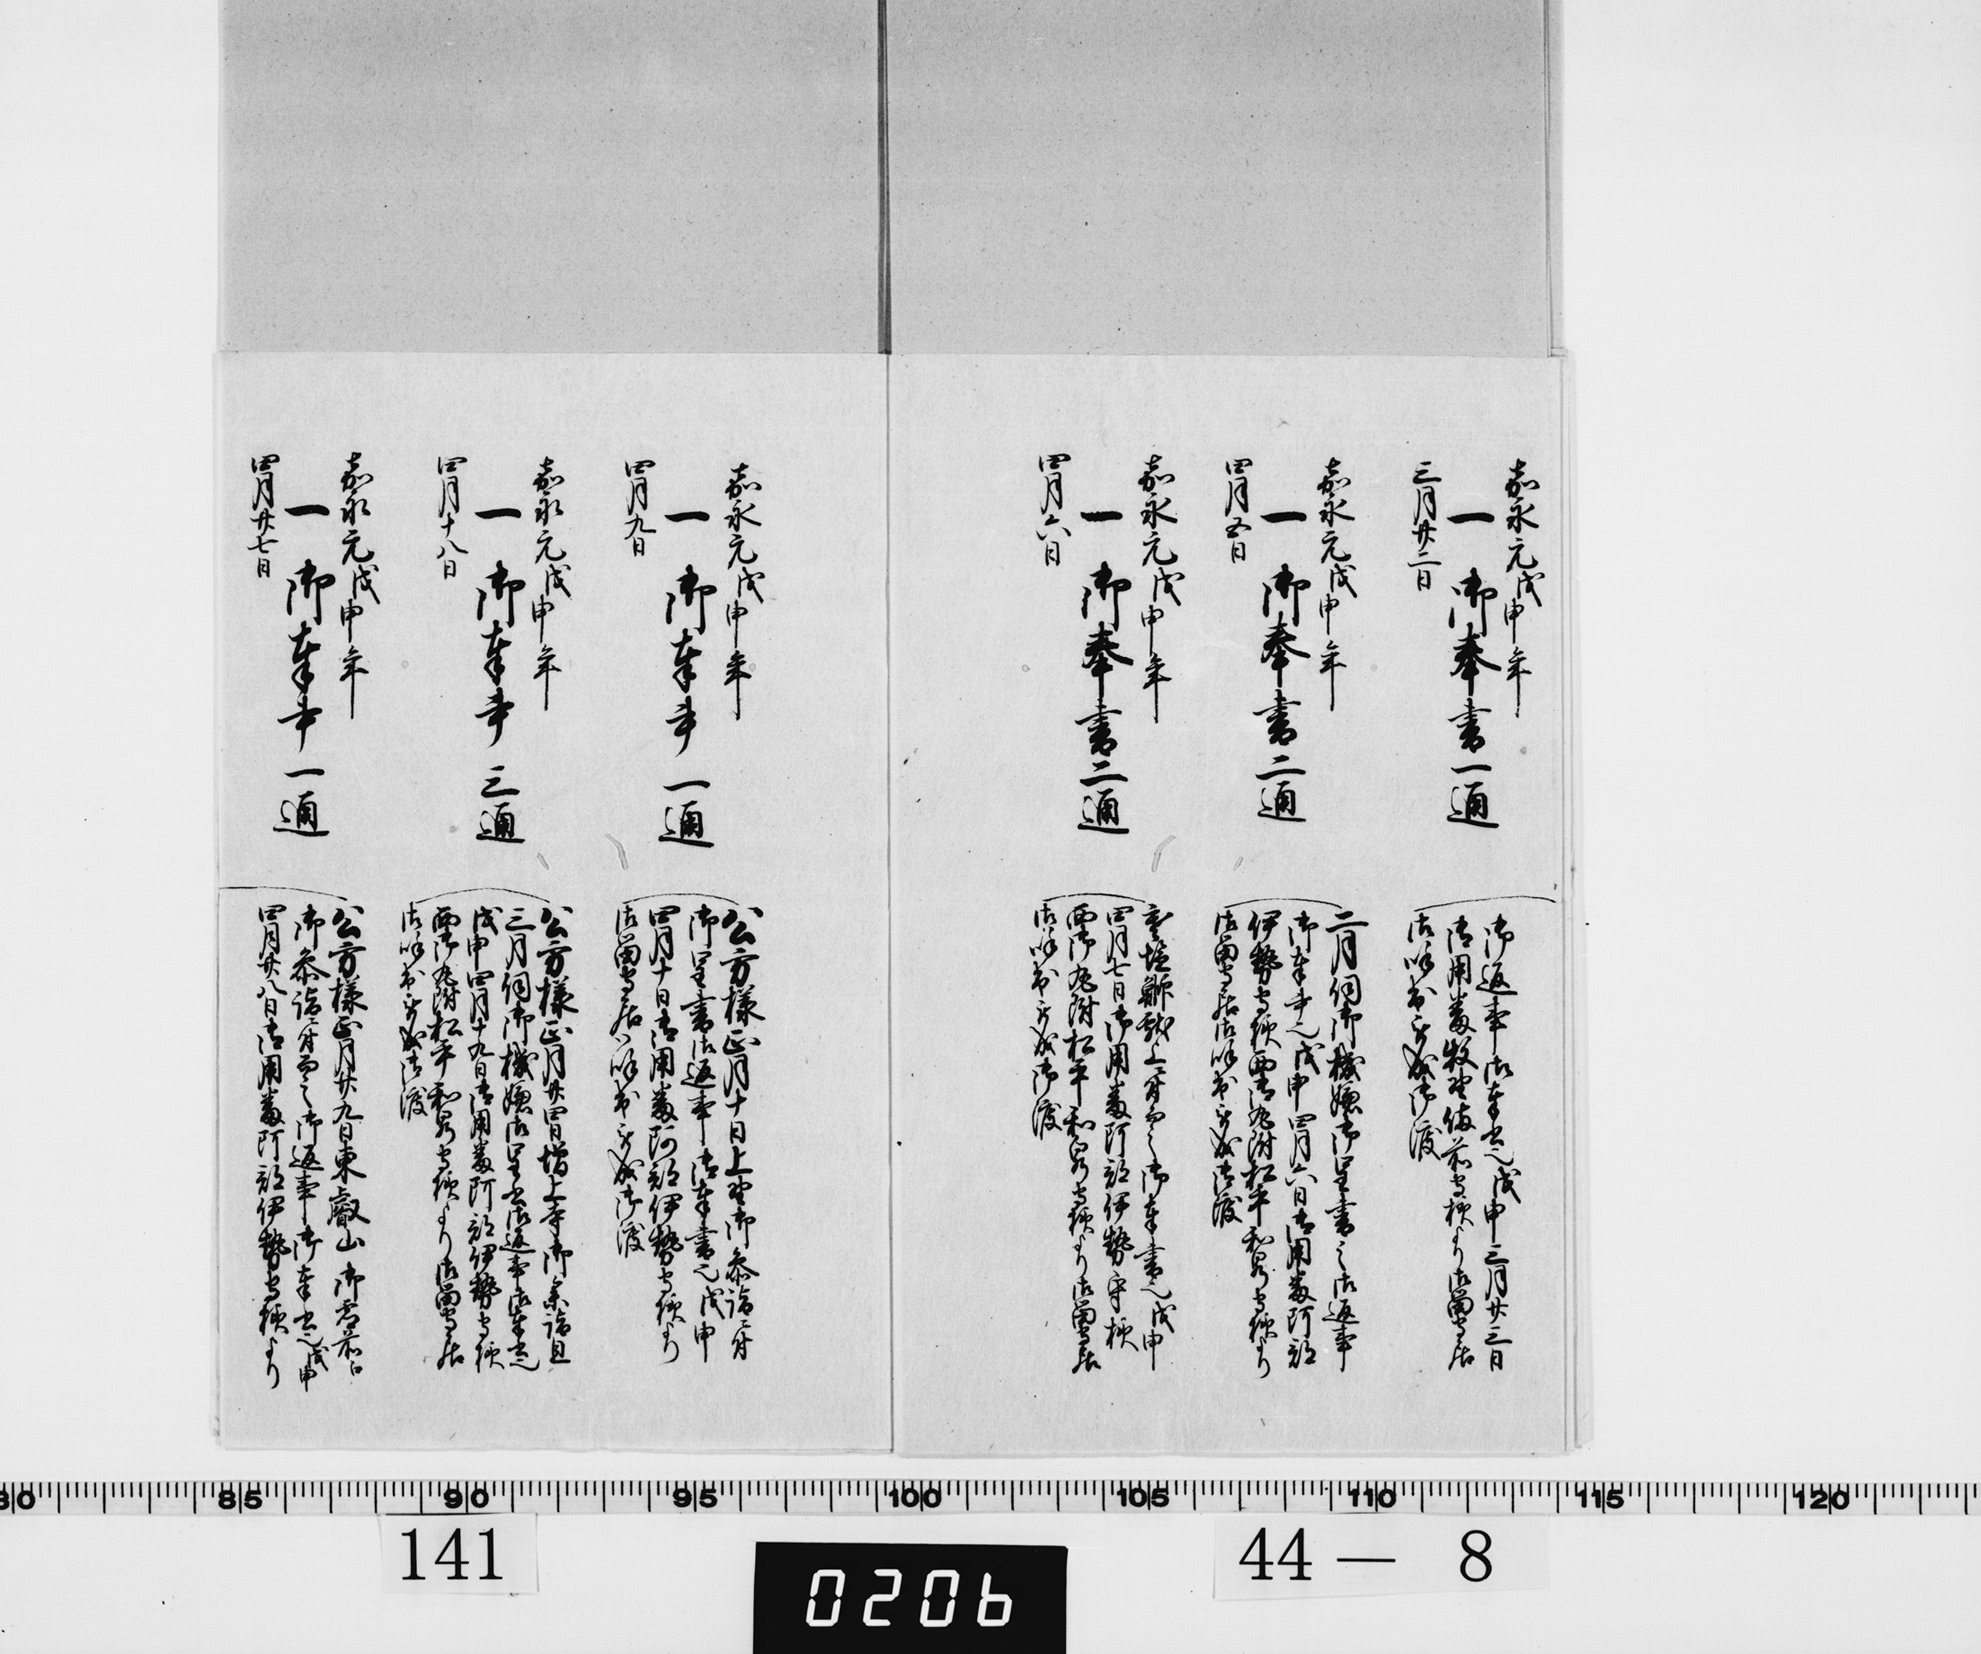 嘉永元戊申年
一 御奉書一通
三月廿二日
御返事御奉書戊申三月廿三日
御用番牧野備前守様より御留守居
御呼出ニ而御渡
嘉永元戊申年
一 御奉書二通
四月五日
二月伺御機嫌御呈書之御返事
御奉書戊申四月六日御用番阿部
伊勢守様西御丸附松平和泉守様より
御留守居御呼出ニ而御渡
嘉永元戊申年
一 御奉書二通
四月六日
献上ニ付而之御奉書戊申
四月七日御用番阿部伊勢守様
西御丸附松平和泉守様より御留守居
御呼出ニ而御渡
嘉永元戊申年
一 御奉書一通
四月九日
公方様正月十日上野御参詣ニ付
御呈書御返事御奉書戊申
四月十日御用番阿部伊勢守様より
御留守居御呼出ニ而御渡
嘉永元戊申年
一 御奉書三通
四月十八日
公方様正月廿四日増上寺御参詣且
三月伺御機嫌御呈書御返事御奉書
戊申四月十九日御用番阿部伊勢守様
西御丸附松平和泉守様より御留守居
御呼出ニ而御渡
嘉永元戊申年
一 御奉書一通
四月廿七日
公方様正月廿九日東叡山御霊前江
御参詣ニ付而之御返事御奉書戊申
四月廿八日御用番阿部伊勢守様より
80 85 90 95 100 105 110 115 120
141
0206
44— 8